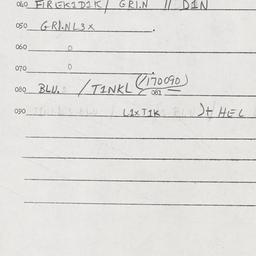 040 FIREK1D1K/ GRI.N // D1N
050 GRI.NL3X .
060 0
070 0
080 BLU. /T1NKL (/170090)
081
090 L1XT1K )+ HEL